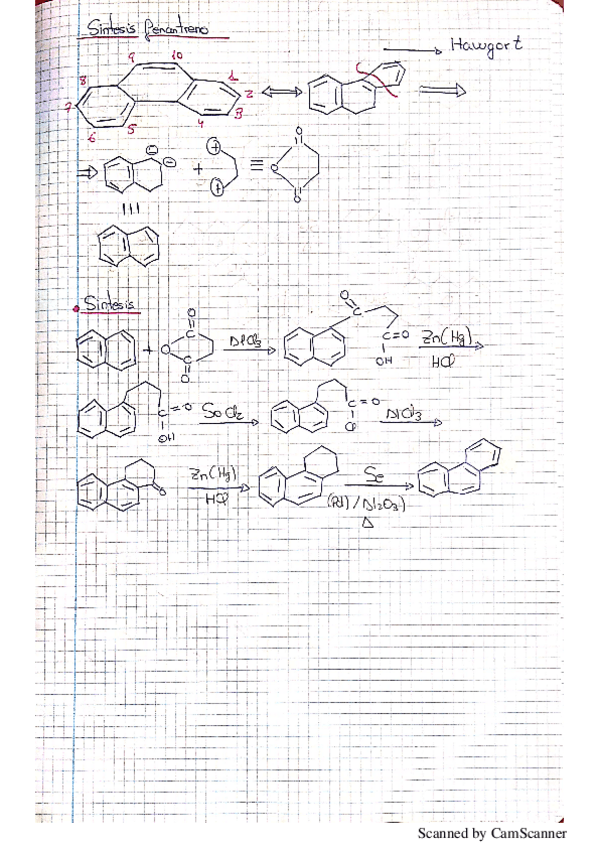 Síntesis fenantreno
→ Hawgort
9 10
8 1
7 2
6 5 4 3
⇔ ⇒
⇒ ⊖ ⊖ + ⊕ ⊕ ≡ O O O
III
• Síntesis
+ O C=O C=O AlCl3 → O C C=O OH Zn(Hg) HCl →
C=O OH SOCl2 → C=O Cl AlCl3 →
O Zn(Hg) HCl → Se (Pd/Al2O3) Δ →
Scanned by CamScanner